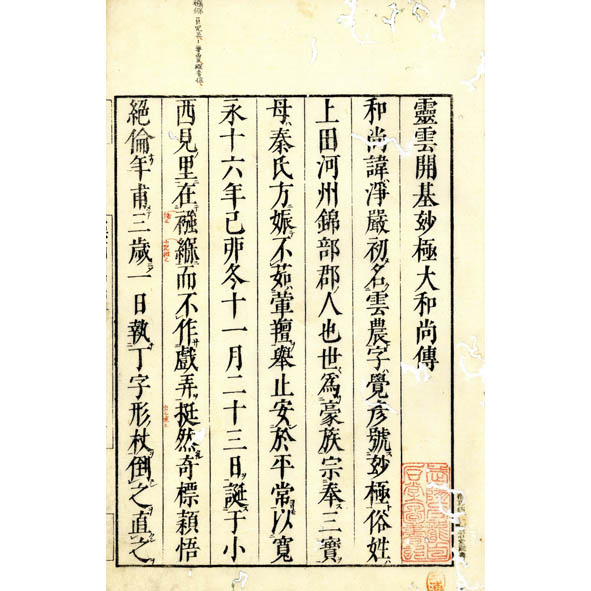 靈雲開基玅極大和尚傳
和尚諱淨嚴初名雲農字覺彥號玅極俗姓
上田河州錦部郡人也世爲豪族宗奉三寶
母秦氏方娠不茹葷羶舉止安於平常以寬
永十六年己卯冬十一月二十三日誕于小
西見里在襁緥而不作戲弄挺然奇標穎悟
絕倫年甫三歲一日執丁字形杖倒之直之